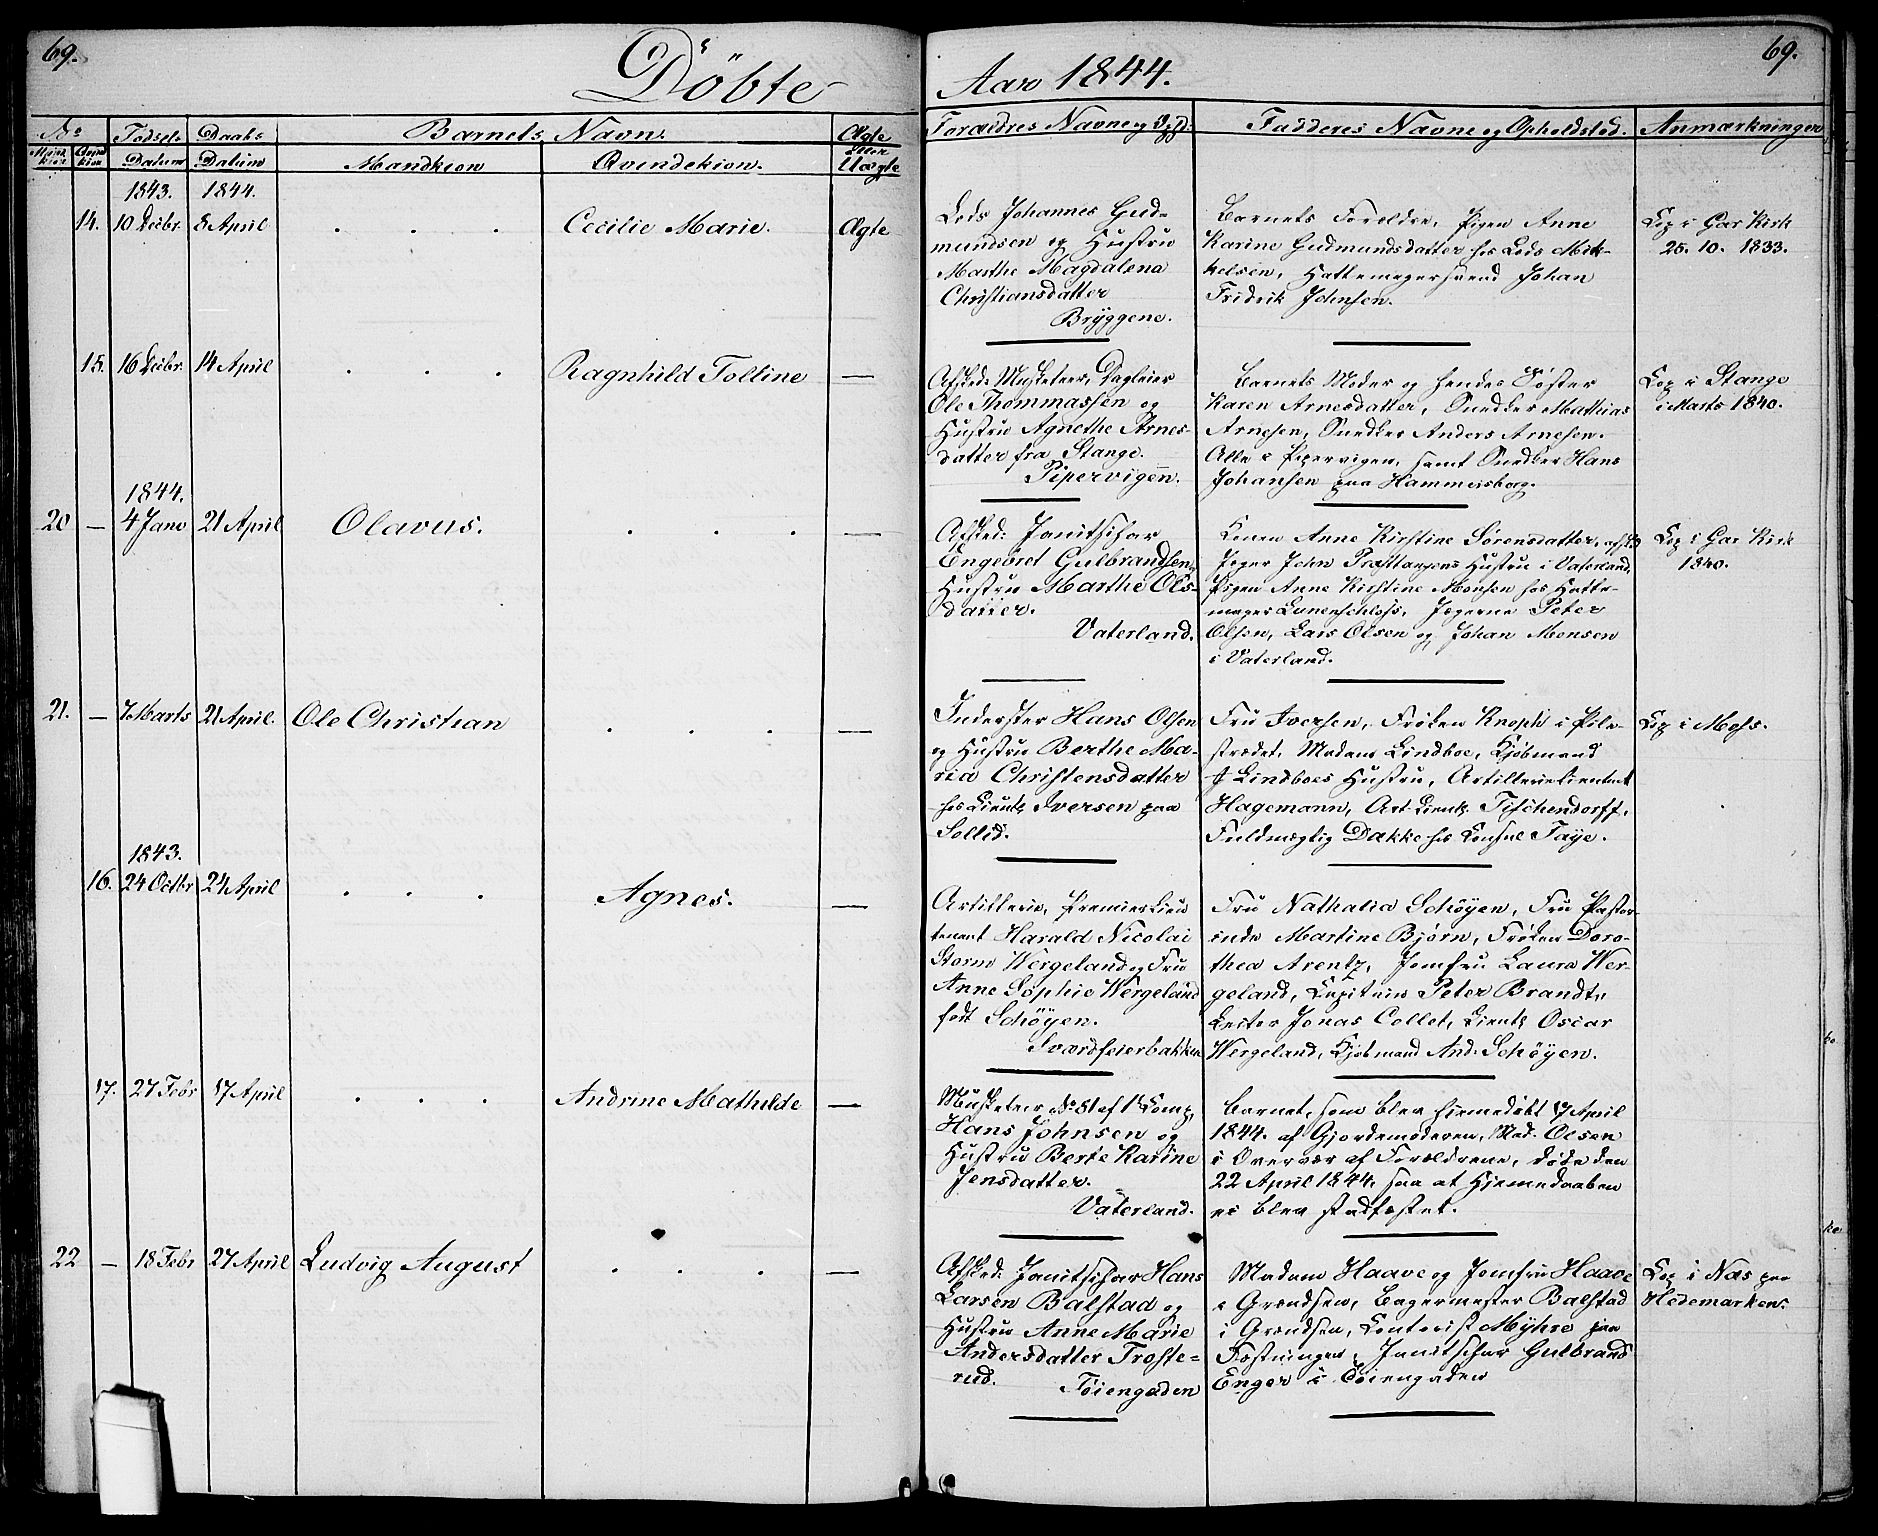 69.
Döbte
Aar 1844.
69.
No
Mandkiøn
Qvindkiøn
Fødsels Datum
Daabs Datum
Barnets Navn.
Mandkiøn
Qvindekiøn.
Ægte
Eller
Uægte
Forældres Navne og
Fadderes Navne og Opholdsted.
Anmærkninger
1843. 1844.
14. 10 Decbr. 8 April
Cecilie Marie.
Ægte
Leds Johannes Gud-
mundsen og Hustru
Marthe Magdalena
Christiansdatter
Bryggene.
Barnets Forældre, Pigen Anne
Karine Gudmundsdatter hos Leds Mik-
kelsen, Hattemagersvend Johan
Fridrik Johnsen.
Cop i Gar Kirk
25. 10. 1833.
15. 16 Decbr. 14 April
Ragnhild Tolline
—
Afsked: Musketeer, Dagleier
Ole Thommassen og
Hustru Agnethe Arnes-
datter fra Stange.
Pipervigen.
Barnets Moder og hendes Søster
Karen Arnesdatter, Snedker Mathias
Arnesen, Snedker Anders Arnesen.
Alle i Pipervigen, samt Snedker Hans
Johansen paa Hammersborg.
Cop i Stange
i Marts 1840.
1844.
20 — 4 Janv 21 April
Olavus.
—
Afsked: Janitshar
Engebret Gulbrandsen,
Hustru Marthe Ols-
datter.
Vaterland.
Konen Anne Kirstine Sørensdatter, afsked
Jeger John Præsttangens Hustru i Vaterland,
Pigen Anne Kirstine Monsen hos Hatte-
mager Lunenschloss, Jegerne Peter
Olsen, Lars Olsen og Johan Monsen
i Vaterland.
Cop i Gar Kirk
1840.
21. — 7 Marts 21 April.
Ole Christian
—
Inderster Hans Olsen
og Hustru Berthe Ma-
ria Christensdatter
hos Lieutn Iversen paa
Sollid.
Fru Iversen, Frøken Knoph i Pile-
strædet, Madam Lindboe, Kjøbmand
J Lindboes Hustru, Artillerielieutnant
Hagemann, Art Lieutn Tischendorff,
Fuldmægtig Dakke hos Consul Faye.
Cop i Moss.
1843.
16. 24 Octbr 24 April
Agnes.
—
Artillerie, Premierlieu
tenant Harald Nicolai
Storm Wergeland og Fru
Anne Sophie Wergeland
født Schøyen.
Sværdfeierbakken
Fru Nathalia Schøyen, Fru Pastor-
inde Martine Bjørn, Frøken Doro-
thea Arentz, Jomfru Laura Wer-
geland, Capitain Peter Brandt,
Lector Jonas Collet, Lieutn Oscar
Wergeland, Kjøbmand And. Schøyen.
17. 27 Febr 17 April
Andrine Mathilde
—
Musketeer No 81 af 1ste Comp.
Hans Johnsen og
Hustru Berte Karine
Jensdatter.
Vaterland.
Barnet, som blev hjemedøbt 17 April
1844. af Gjordemoderen, Mad. Olsen
i Overvær af Forældrene, døde den
22 April 1844, saa at Hjemedaaben
ei blev stadfæstet.
22 — 18 Febr 27 April
Ludvig August
—
Afsked: Janitshar Hans
Larsen Balstad og
Hustru Anne Marie
Andersdatter Troste=
rud.
Tøiengaden
Madam Haave og Jomfru Haave
i Grændsen, Bagermester Balstad
i Grændsen, Contorist Myhre paa
Fæstningen, Janitshar Gulbrand
Enger i Tøiengaden
Cop i Næs paa
Hedemarken.